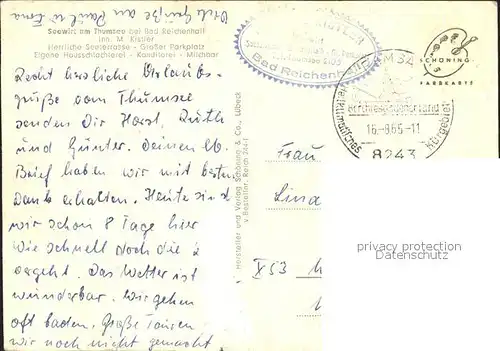 Viele Grüße an Paul u. Erna
Seewirt am Thumsee bei Bad Reichenhall
Inh. M. Kistler
Herrliche Seeterrasse - Großer Parkplatz
Eigene Hausschlachterei - Konditorei - Milchbar
Recht herzliche Urlaubs-
grüße vom Thumsee
senden Dir Horst, Ruth
und Günter. Deinen lb.
Brief haben wir mit besten
Dank erhalten. Heute sind
wir schon 8 Tage hier
Wie schnell doch die Z
vergeht. Das Wetter ist
wunderbar. Wir gehen
oft baden. Große Touren
wir noch nicht gemacht
KISTLER
Bad Reichenhall
SCHÖNING
FARBKARTE
Berchtesgadener Land
16.-8.65.-11
8243
heilklimatisches
Kurgebiet
Hersteller und Verlag Schöning & Co., Lübeck
v. Bestellnr. Reich 344-1
Frau
Lina
X53
privacy protection
Datenschutz